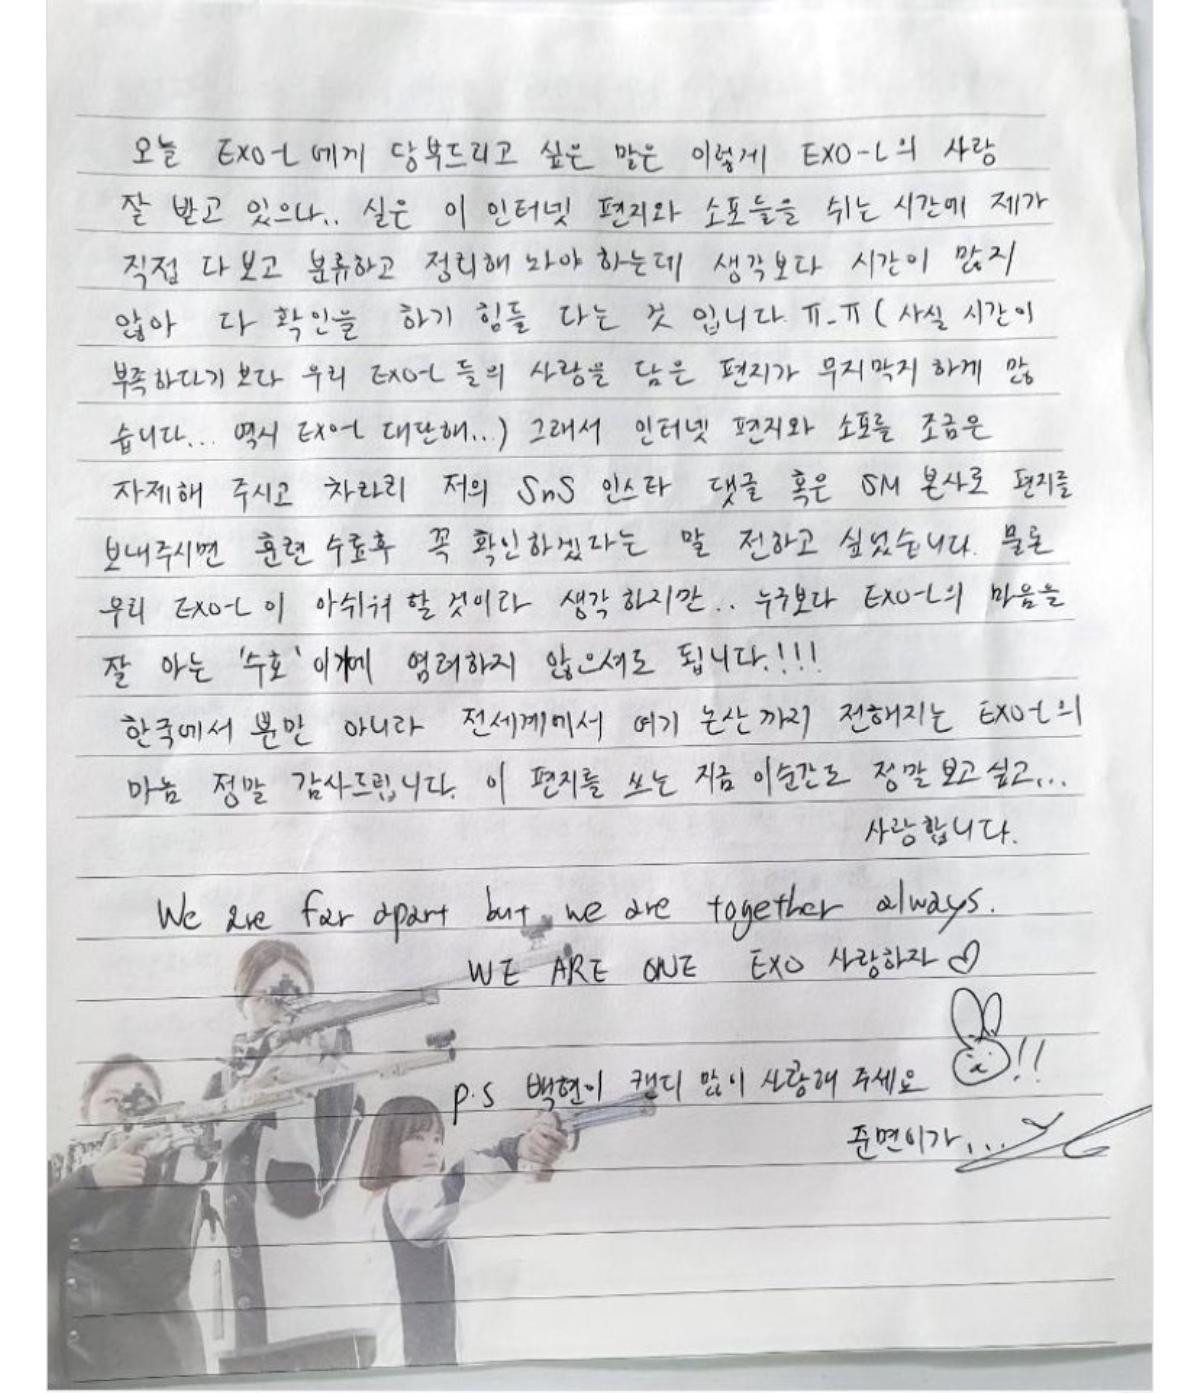 오늘 EXO-L에게 당부드리고 싶은 말은 이렇게 EXO-L의 사랑
잘 받고 있으나.. 실은 이 인터넷 편지와 소포들을 쉬는 시간에 제가
직접 다 보고 분류하고 정리해 놔야 하는데 생각보다 시간이 많지
않아 다 확인을 하기 힘들 다는 것 입니다 ㅠ_ㅠ (사실 시간이
부족하다기 보다 우리 EXO-L 들의 사랑을 담은 편지가 무지막지 하게 많
습니다... 역시 EXO-L 대단해...) 그래서 인터넷 편지와 소포를 조금은
자제해 주시고 차라리 저의 SnS 인스타 댓글 혹은 SM 본사로 편지를
보내주시면 훈련 수료후 꼭 확인하겠다는 말 전하고 싶었습니다. 물론
우리 EXO-L이 아쉬워 할 것이라 생각하지만.. 누구보다 EXO-L의 마음을
잘 아는 '수호' 이기에 염려하지 않으셔도 됩니다.!!!
한국에서 뿐만 아니라 전세계에서 여기 논산까지 전해지는 EXO-L의
마음 정말 감사드립니다. 이 편지를 쓰는 지금 이순간도 정말 보고 싶고...
사랑합니다.
We are far apart but we are together always.
WE ARE ONE EXO 사랑하자 ♡
p.s 백현이 캔디 많이 사랑해 주세요 !!
준면이가...